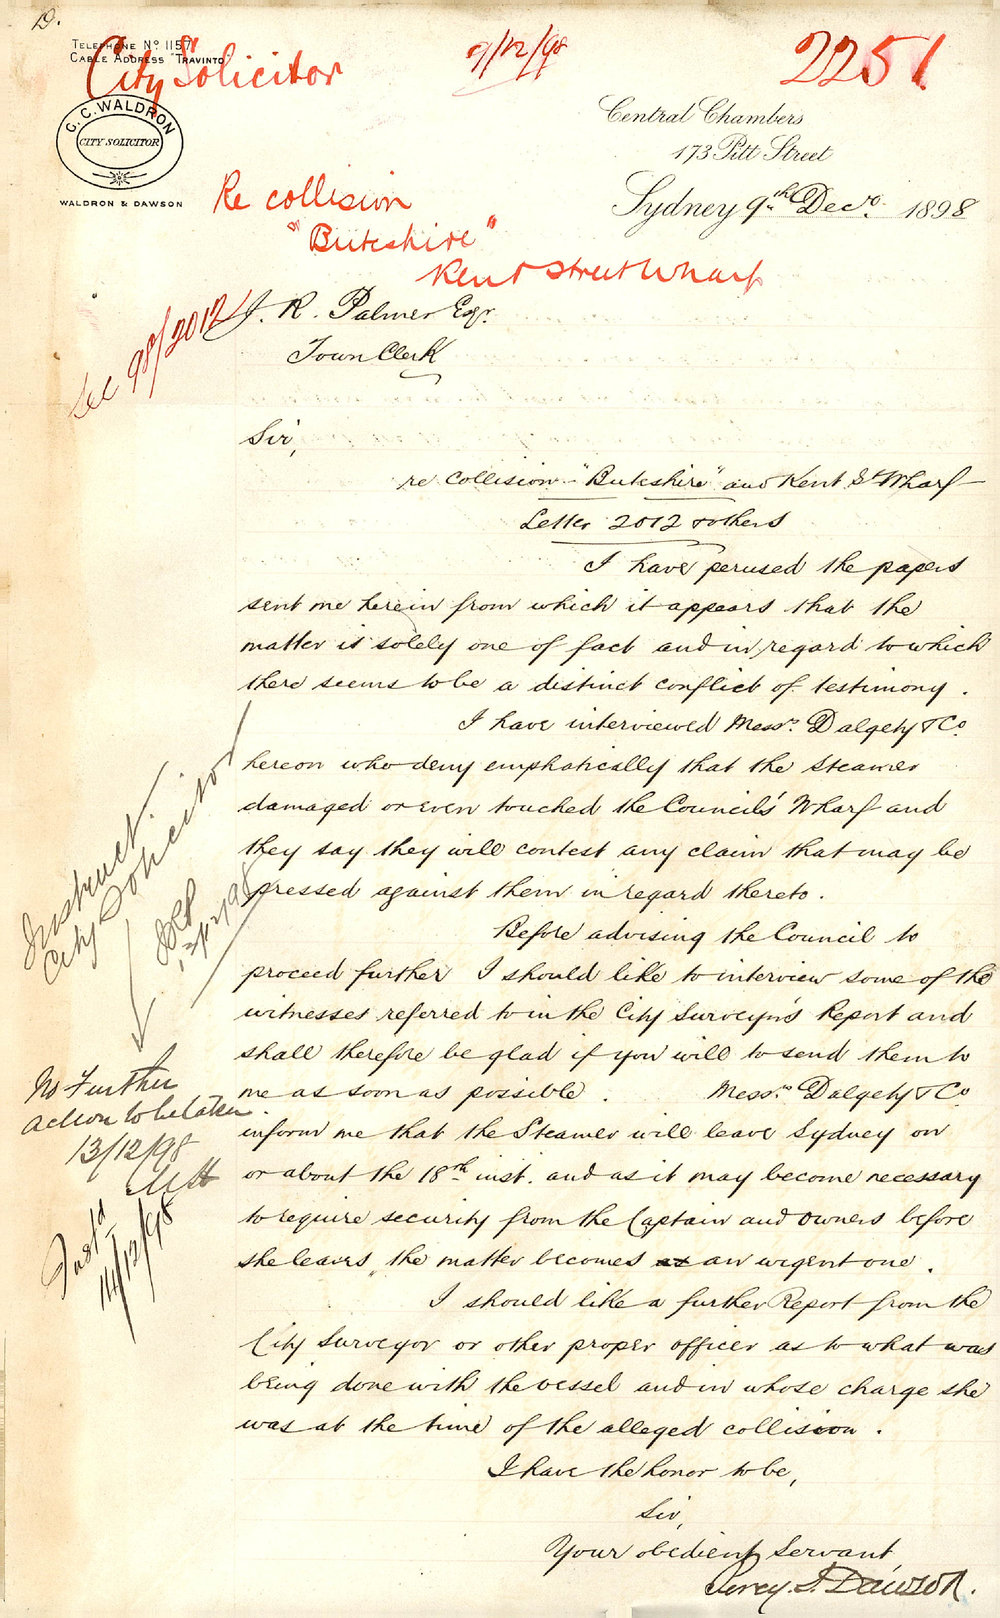 D.
TELEPHONE No 1157
CABLE ADDRESS "TRAVINTO"
City Solicitor
9/12/98
2251
G. C. WALDRON
CITY SOLICITOR
WALDRON & DAWSON
Central Chambers
173 Pitt Street
Sydney 9th Decr. 1898
Re collision
"Buteshire"
Kent Street Wharf
See 98/2012
J. R. Palmer Esqr.
Town Clerk
Sir,
re Collision - "Buteshire" and Kent St Wharf
Letter 2012 & others
I have perused the papers
sent me herein from which it appears that the
matter is solely one of fact and in regard to which
there seems to be a distinct conflict of testimony.
I have interviewed Messrs. Dalgety & Co
hereon who deny emphatically that the Steamer
damaged or even touched the Council's Wharf and
they say they will contest any claim that may be
pressed against them in regard thereto.
Before advising the Council to
proceed further I should like to interview some of the
witnesses referred to in the City Surveyor's Report and
shall therefore be glad if you will to send them to
me as soon as possible. Messrs Dalgety & Co
inform me that the Steamer will leave Sydney on
or about the 18th inst. and as it may become necessary
to require security from the Captain and Owners before
she leaves, the matter becomes at an urgent one.
I should like a further Report from the
City Surveyor or other proper officer as to what was
being done with the vessel and in whose charge she
was at the time of the alleged collision.
I have the honor to be,
Sir,
Your obedient Servant
Percy. S. Dawson.
Instruct
City Solicitor
12/12/98
No Further
action to be taken.
13/12/98
Instd
14/12/98